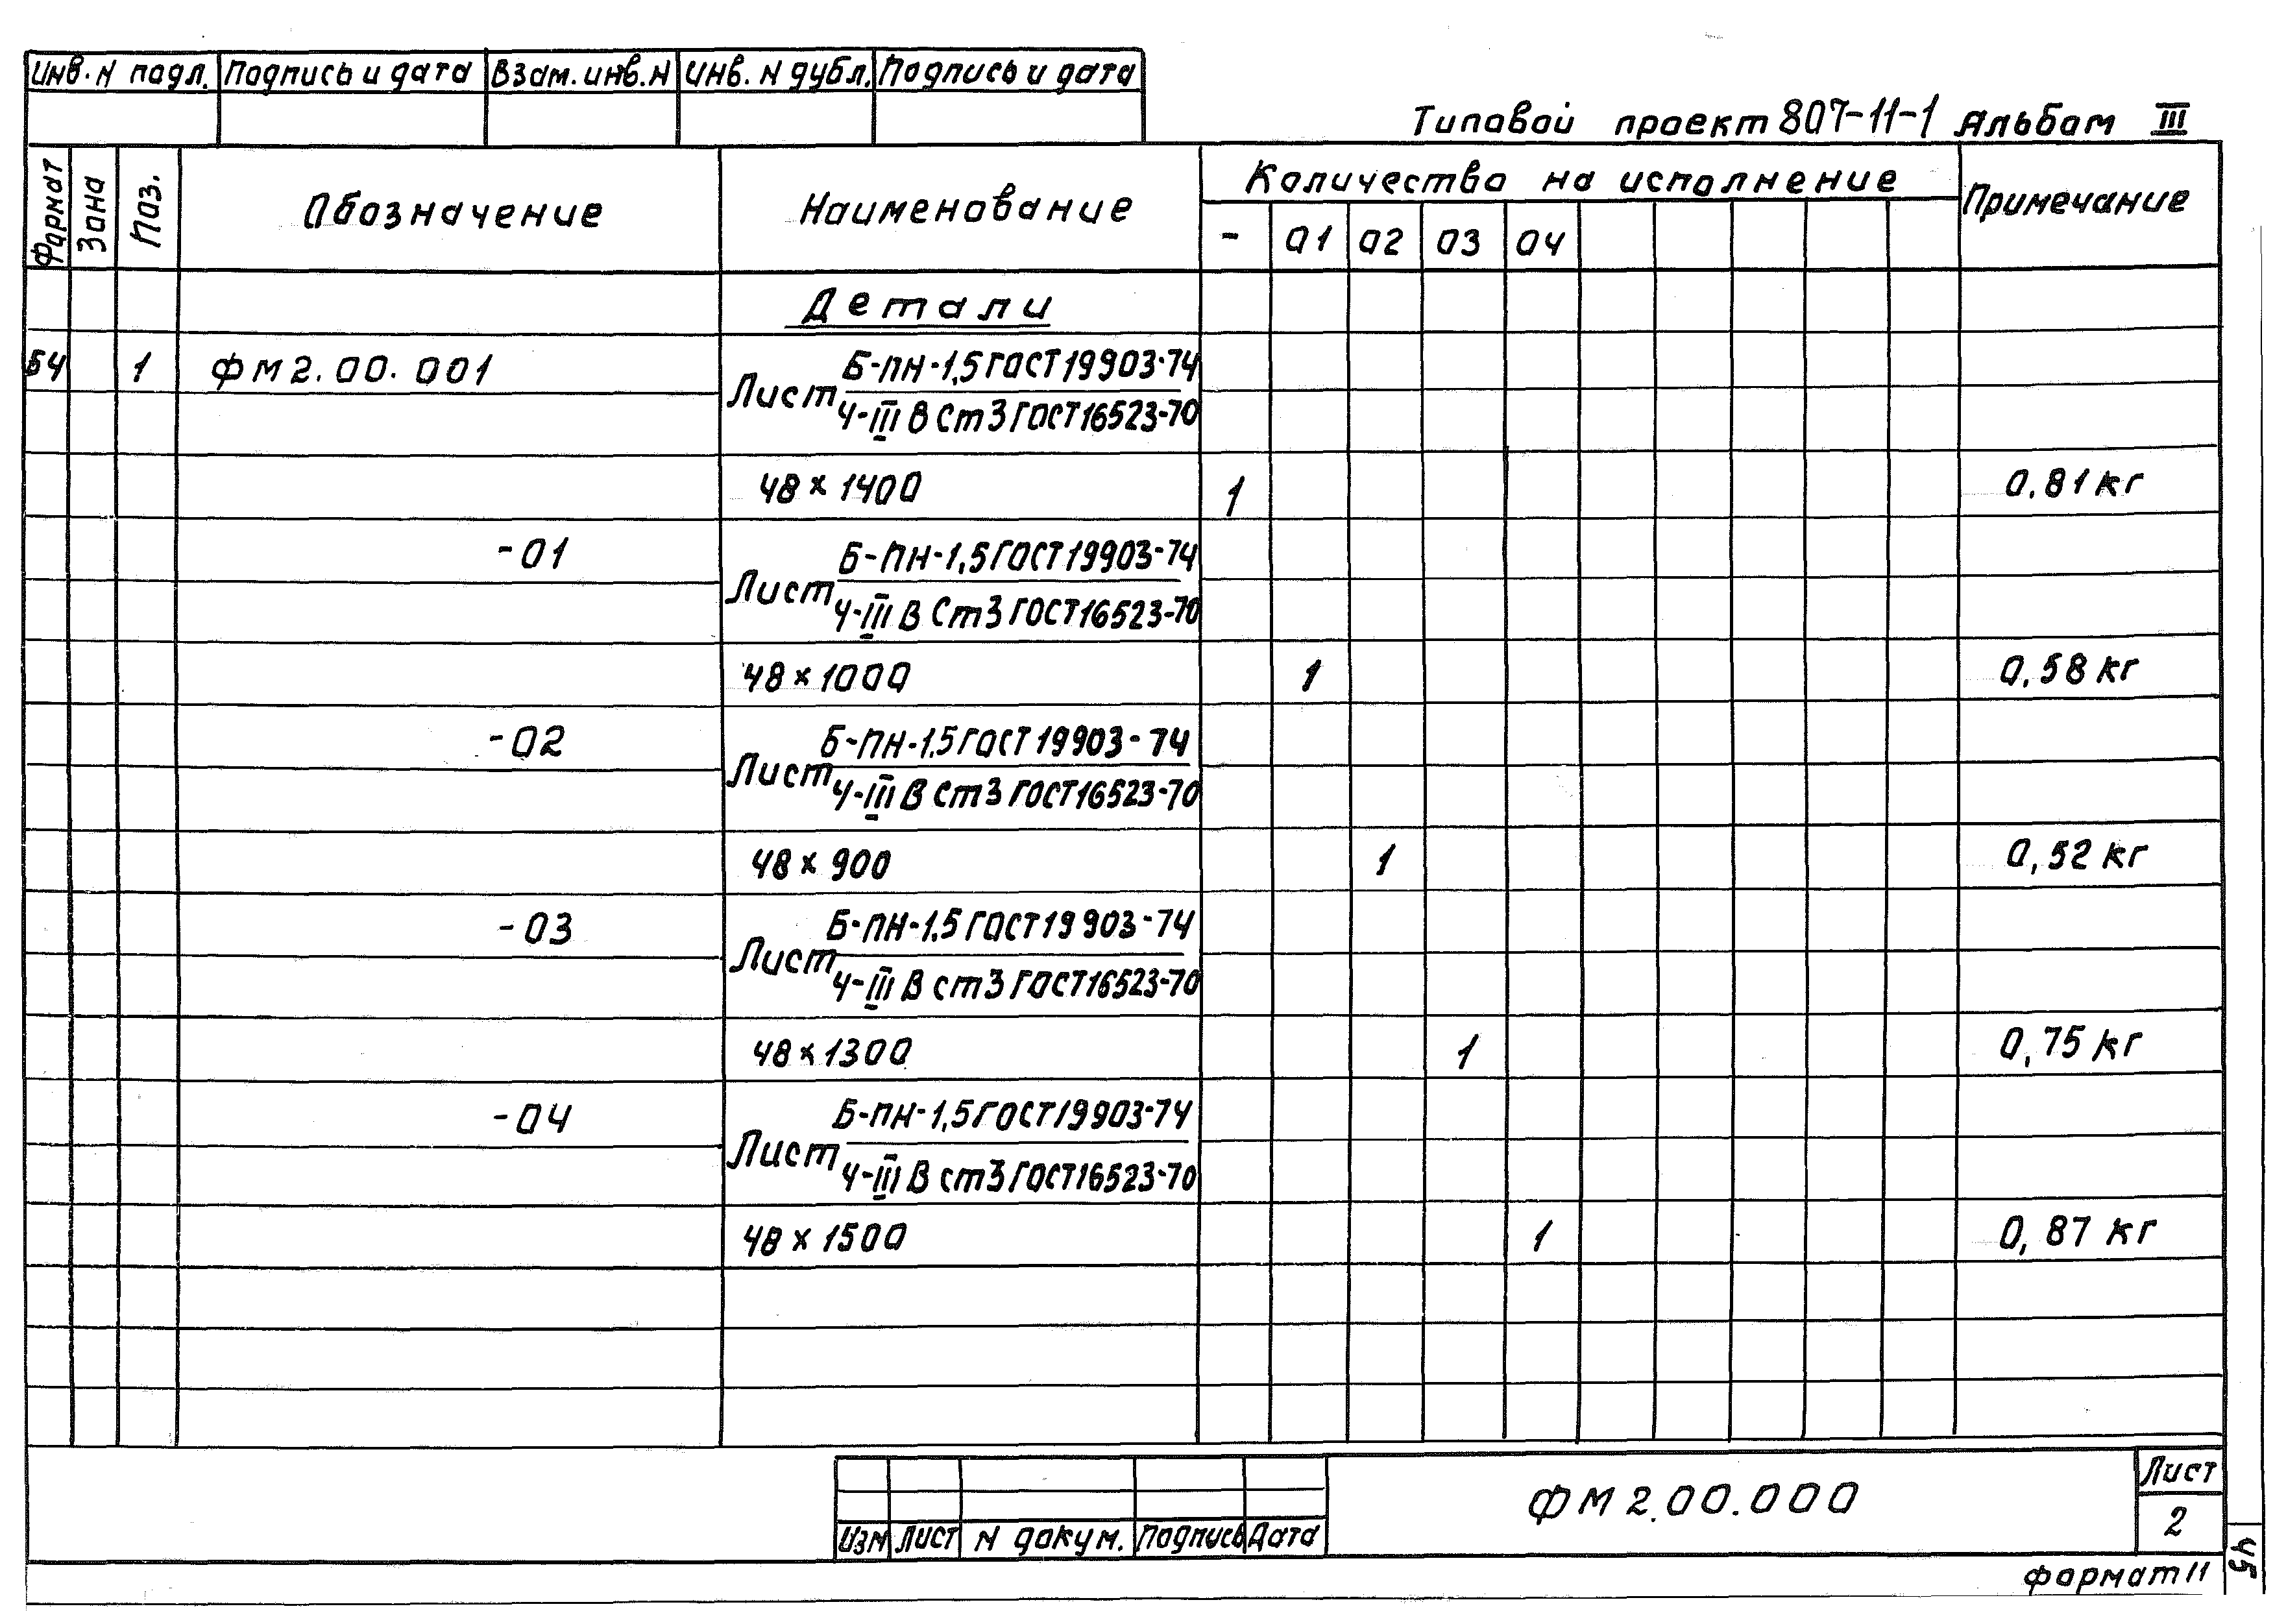 Инв. N подл. Подпись и дата Взам. инв. N Инв. N дубл. Подпись и дата
Типовой проект 807-11-1 Альбом III
Формат Зона Поз. Обозначение Наименование Количество на исполнение Примечание
- 01 02 03 04
Детали
Б4 1 ФМ2.00.001 Лист Б-ПН-1,5 ГОСТ 19903-74
4-III В Ст3 ГОСТ 16523-70
48 х 1400 1 0,81 кг
-01 Лист Б-ПН-1,5 ГОСТ 19903-74
4-III В Ст3 ГОСТ 16523-70
48 х 1000 1 0,58 кг
-02 Лист Б-ПН-1,5 ГОСТ 19903-74
4-III В Ст3 ГОСТ 16523-70
48 х 900 1 0,52 кг
-03 Лист Б-ПН-1,5 ГОСТ 19903-74
4-III В Ст3 ГОСТ 16523-70
48 х 1300 1 0,75 кг
-04 Лист Б-ПН-1,5 ГОСТ 19903-74
4-III В Ст3 ГОСТ 16523-70
48 х 1500 1 0,87 кг
Изм Лист N докум. Подпись Дата
ФМ2.00.000
Лист
2
Формат 11
45